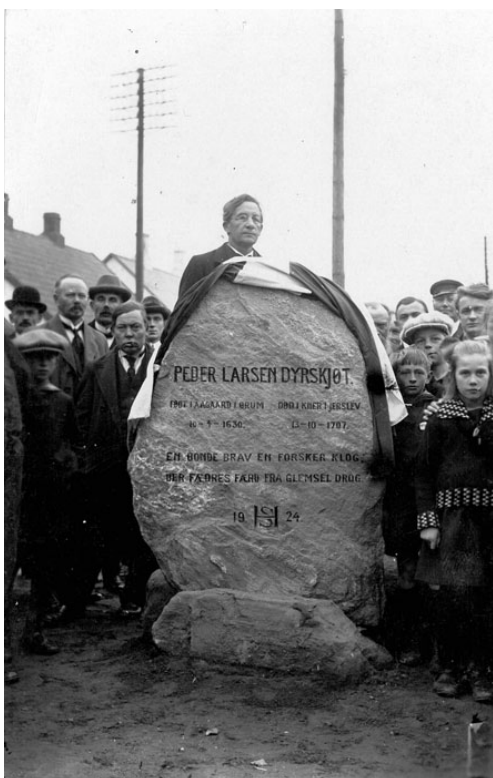 PEDER LARSEN DYRSKJØT.
FØDT I AAGAARD I ØRUM DØD I KÆR I JERSLEV
10-5-1630. 13-10-1707.
EN BONDE BRAV EN FORSKER KLOG,
DER FÆDRES FÆRD FRA GLEMSEL DROG
19 24